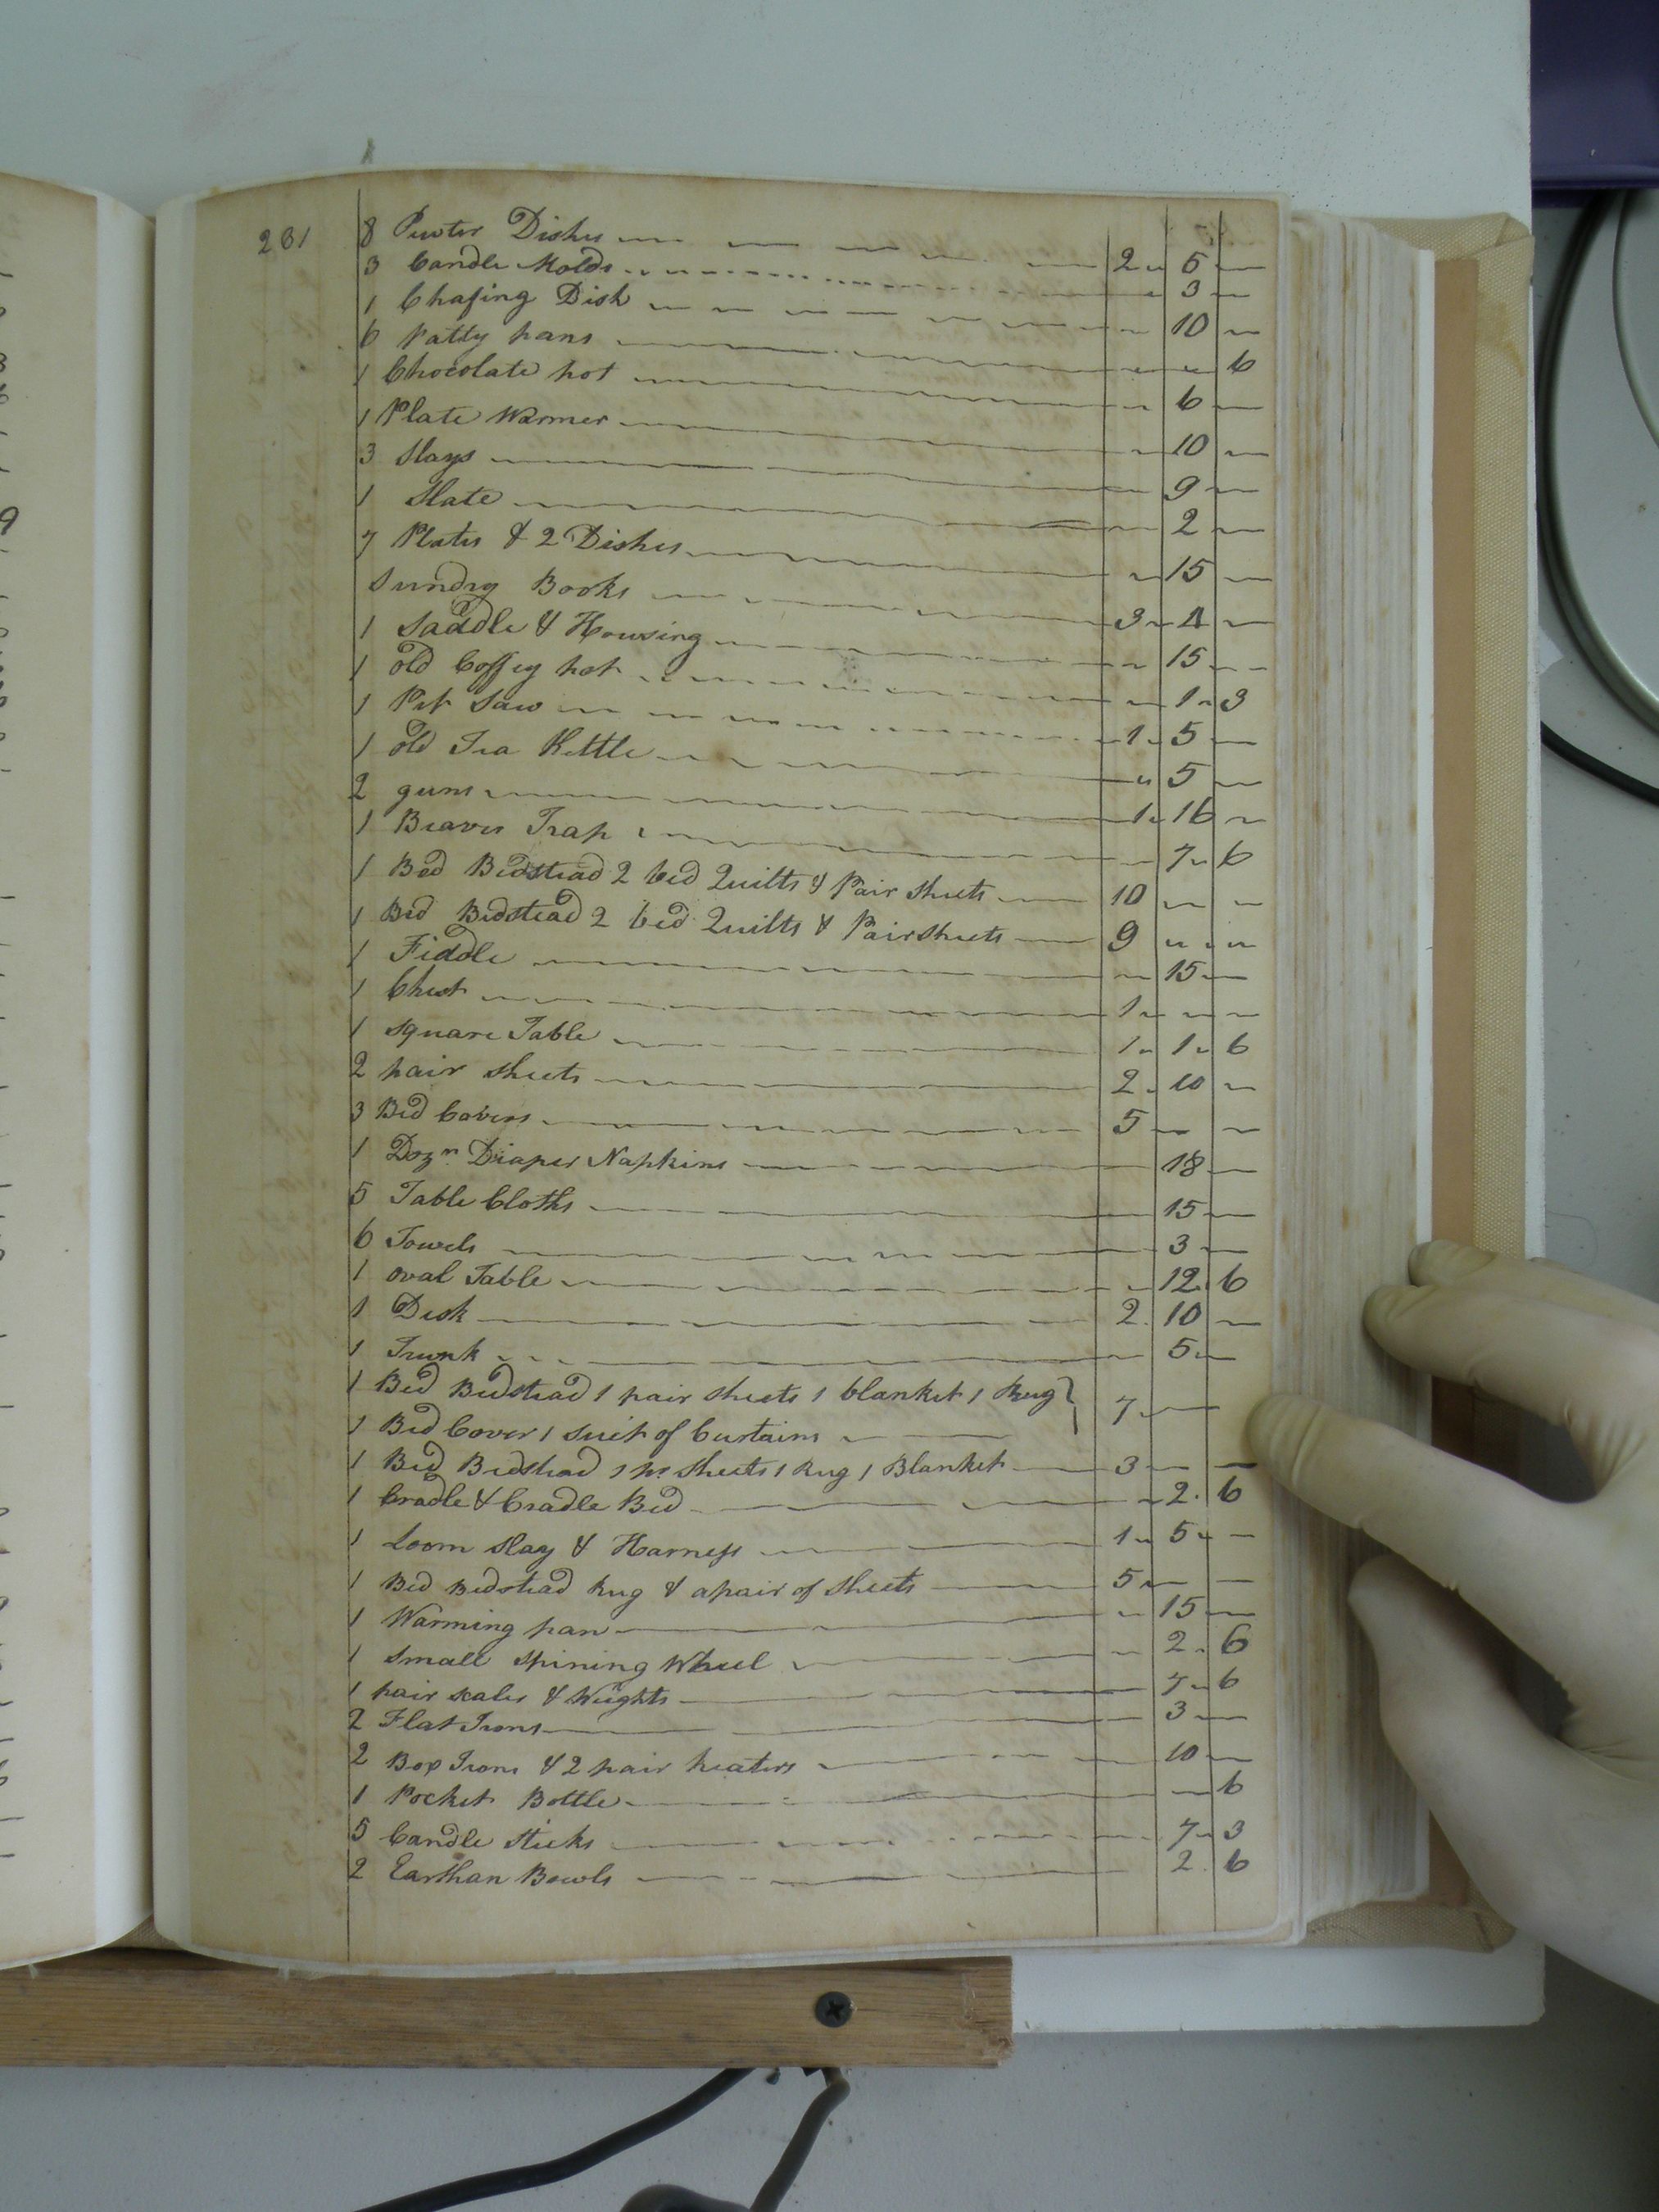 231
8 Pewter Dishes 2 5 —
3 Candle Molds 3 —
1 Chafing Dish 10 —
6 Patty pans 6
1 Chocolate pot 6 —
1 Plate Warmer 10 —
3 Slays 9 —
1 Slate 2 —
7 Plates & 2 Dishes 15 —
Sundry Books 3 4 —
1 Saddle & Housing 15 —
1 old Coffey pot 1 3
1 Pit Saw 1 5 —
1 old Tea Kettle 5 —
2 guns 1 16 —
1 Beaver Trap 7 6
1 Bed Bedstead 2 bed Quilts & Pair Sheets 10 — —
1 Bed Bedstead 2 bed Quilts & Pair Sheets 9 — —
1 Fiddle 15 —
1 Chest 1 — —
1 square Table 1 1 6
2 pair sheets 2 10 —
3 Bed Covers 5 — —
1 Dozn Diaper Napkins 18 —
5 Table Cloths 15 —
6 Towels 3 —
1 oval Table 12 6
1 Desk 2 10 —
1 Trunk 5 —
1 Bed Bedstead 1 pair sheets 1 blanket 1 Rug } 7 —
1 Bed Cover 1 suit of Curtains
1 Bed Bedstead 1 pr sheets 1 Rug 1 Blanket 3 — —
1 Cradle & Cradle Bed 2 6
1 Loom Slay & Harness 1 5 —
1 Bed Bedstead Rug & a pair of Sheets 5 — —
1 Warming pan 15 —
1 small spining Wheel 2 6
1 pair scales & Weights 7 6
2 Flat Irons 3 —
2 Box Irons & 2 pair heaters 10 —
1 Pocket Bottle — 6
5 Candle sticks 7 3
2 Earthan Bowls 2 6